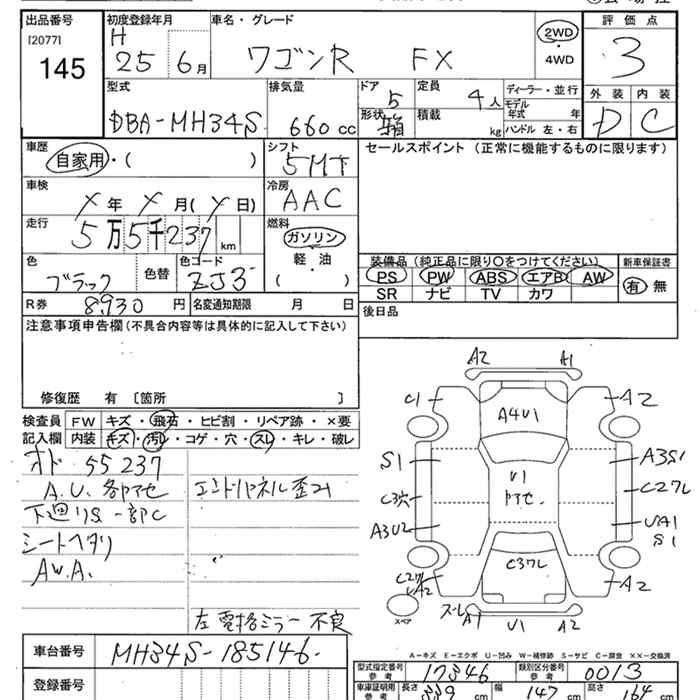 出品番号 初度登録年月 車名・グレード 評価点
[2077] H
145 25 6月 ワゴンR FX 2WD 4WD 3
型式 排気量 ドア 定員 ディーラー・並行 外装 内装
DBA-MH34S 660cc 5 4人 モデル年式 年 D C
形状 箱 積載 kg ハンドル 左・右
車歴 シフト セールスポイント(正常に機能するものに限ります)
自家用・( ) 5MT
車検 冷房
X年 X月(X日) AAC
走行 燃料
5万5千237km ガソリン
軽・油
( )
色 色替 色コード 装備品(純正品に限り○をつけてください) 新車保証書
ブラック ZJ3 PS PW ABS エアB AW 有 無
SR ナビ TV カワ
R券 8,930円 名変通知期限 月 日 後日品
注意事項申告欄(不具合内容等は具体的に記入して下さい)
修復歴 有 [箇所 ]
検査員記入欄 FW キズ・飛石・ヒビ割・リペア跡・×要
内装 キズ・汚レ・コゲ・穴・スレ・キレ・破レ
オド 55237
A.U.各部アセ エンドパネル歪み
下廻りS一部C
シートヘタリ
AW.A.
左電格ミラー不良
A2 A1
C1 A4U1 A2
S1 U1 A3S1
C3穴 C27L
A3U2 UA1
S1
C37L
A2 A2
スペア スレ A1 U1 A2
A-キズ E-エクボ U-凹み W-補修跡 S-サビ C-腐食 XX-交換済
車台番号 MH34S-185146
登録番号
型式指定番号 参考 17346 類別区分番号 参考 0013
車庫証明用 参考 長さ 339cm 幅 147cm 高さ 164cm